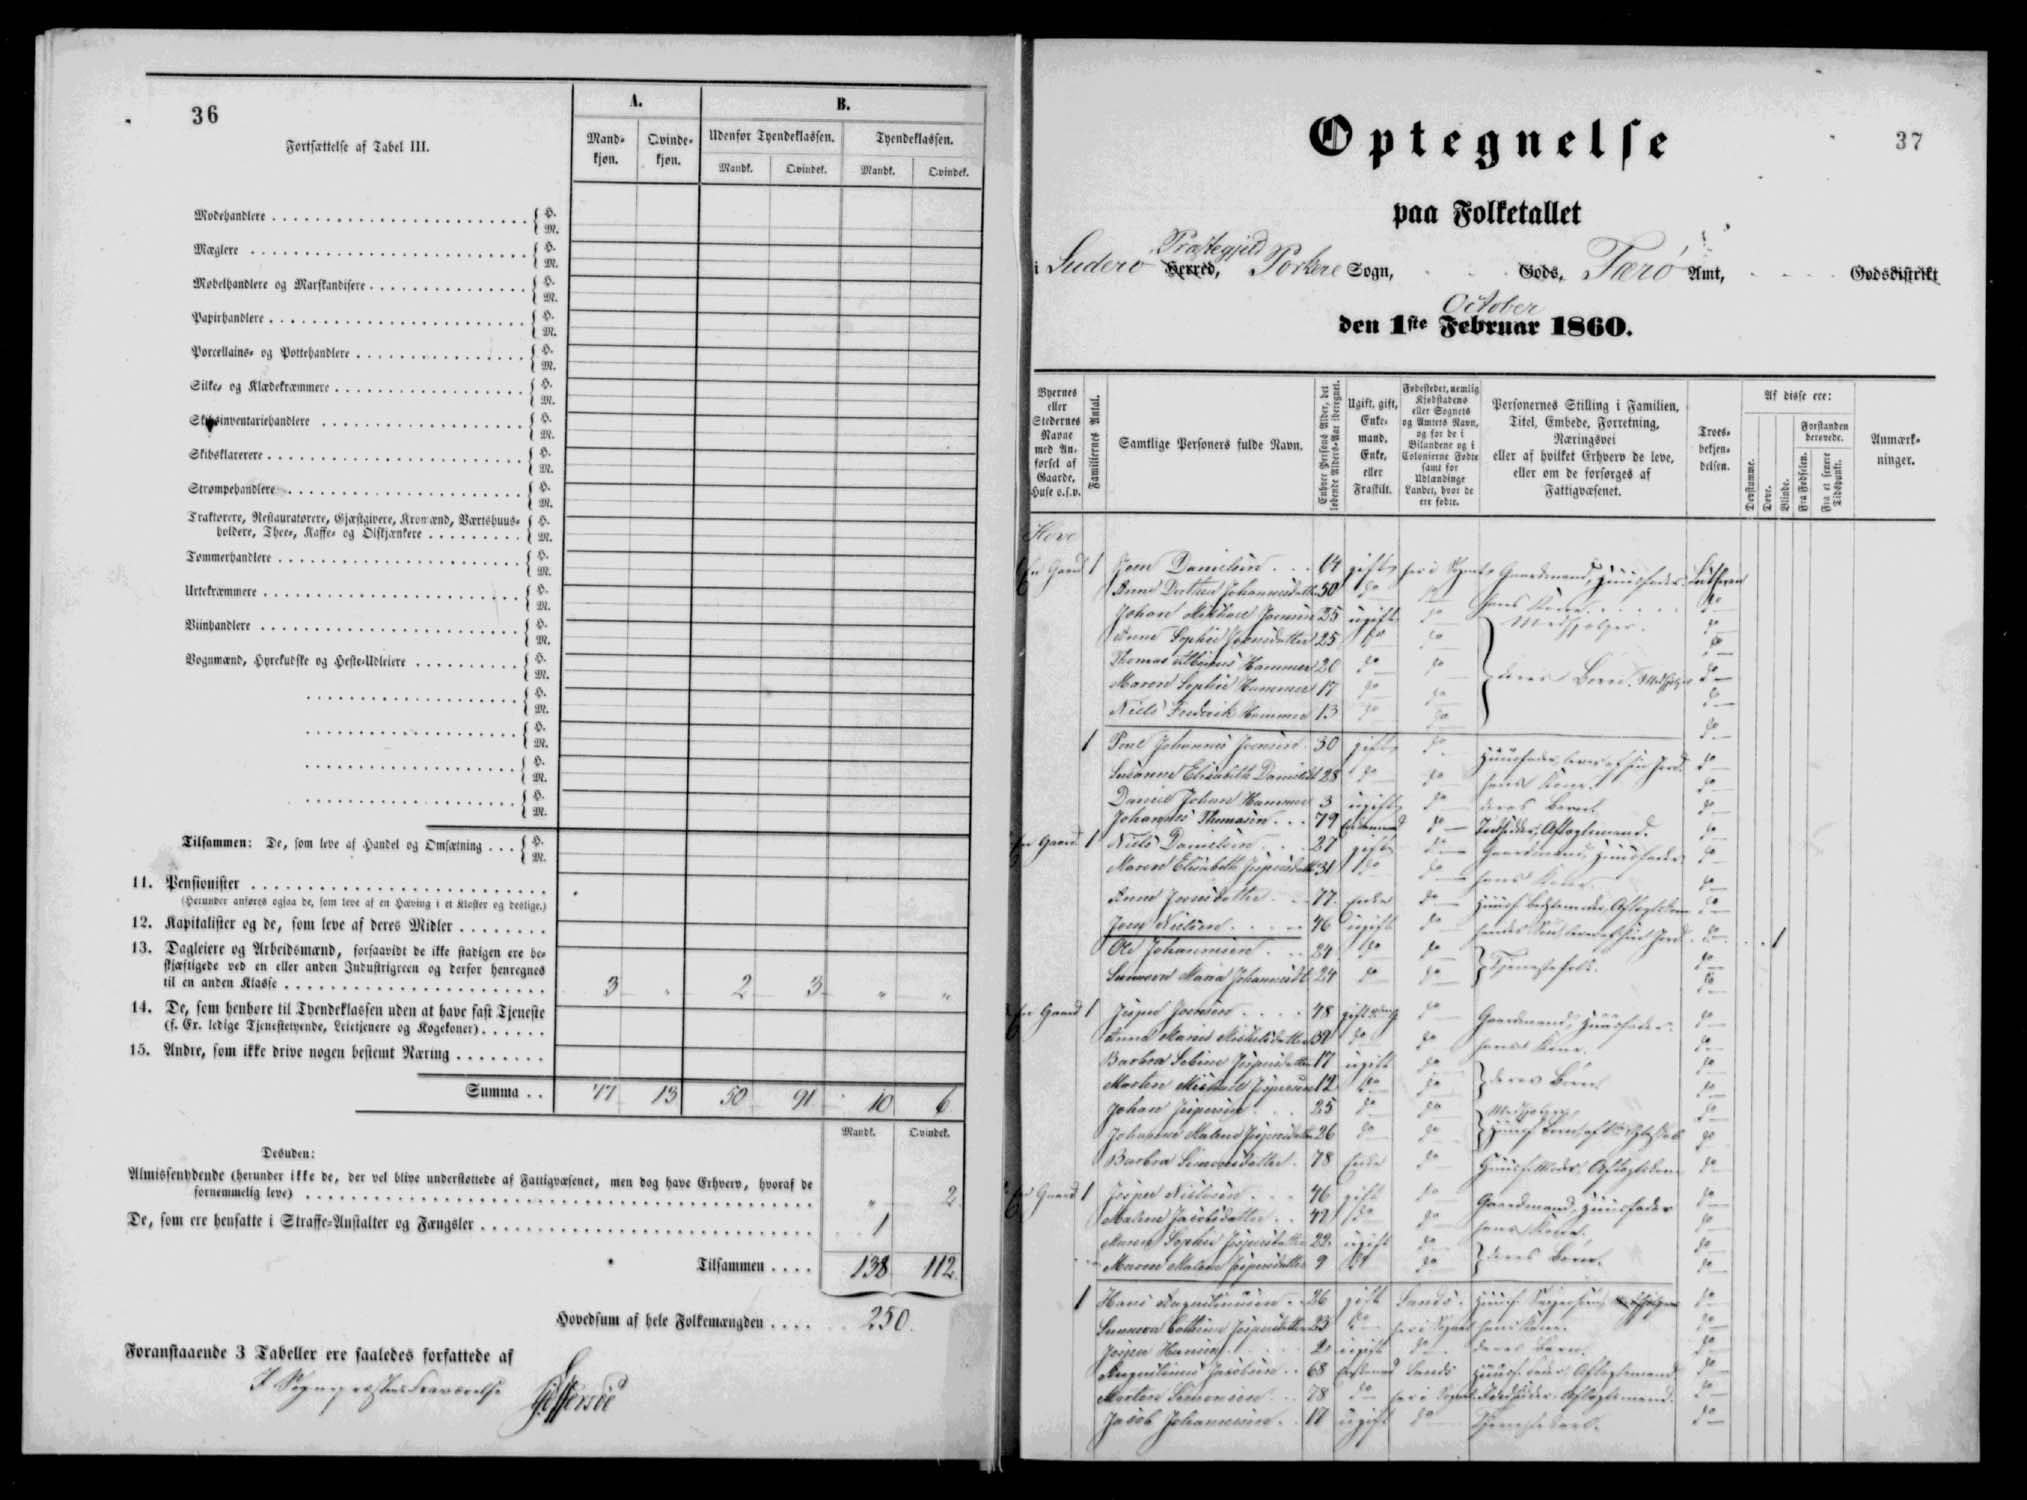 36
Fortsættelse af Tabel III.
A.
B.
Mand-
kjøn.
Qvinde-
kjøn.
Udenfor Tyendeklassen.
Tyendeklassen.
Mandk.
Qvindek.
Mandk.
Qvindek.
Modehandlere { H.
M.
Mæglere { H.
M.
Møbelhandlere og Marskandisere { H.
M.
Papirhandlere { H.
M.
Porcellains- og Pottehandlere { H.
M.
Silke- og Klædekræmmere { H.
M.
Skibsinventariehandlere { H.
M.
Skibsklarerere { H.
M.
Strømpehandlere { H.
M.
Traktører, Restauratører, Gjæstgivere, Kromænd, Værtshuus- { H.
holdere, Thee-, Kaffe- og Ølskjænkere M.
Tømmerhandlere { H.
M.
Urtekræmmere { H.
M.
Viinhandlere { H.
M.
Vognmænd, Hyrekudske og Heste-Udleiere { H.
M.
{ H.
M.
{ H.
M.
{ H.
M.
{ H.
M.
Tilsammen: De, som leve af Handel og Omsætning { H.
M.
11. Pensionister
(Herunder anføres ogsaa de, som leve af en Hæving i et Kloster og deslige.)
12. Kapitalister og de, som leve af deres Midler
13. Dagleiere og Arbeidsmænd, forsaavidt de ikke stadigen ere be-
skjæftigede ved en eller anden Industrigreen og derfor henregnes
til en anden Klasse 3 " 2 3 " "
14. De, som henhøre til Tyendeklassen uden at have fast Tjeneste
(f. Ex. ledige Tjenestetyende, Leietjenere og Kogekoner)
15. Andre, som ikke drive nogen bestemt Næring
Summa 77 13 50 91 10 6
Mandk. Qvindek.
Desuden:
Almissenydende (herunder ikke de, der vel blive understøttede af Fattigvæsenet, men dog have Erhverv, hvoraf de
fornemmelig leve) " 2
De, som ere hensatte i Straffe-Anstalter og Fængsler 1
Tilsammen 138 112
Hovedsum af hele Folkemængden 250.
Foranstaaende 3 Tabeller ere saaledes forfattede af
I Sognepræstens Fraværelse
37
Optegnelse
paa Folketallet
i Suderø Præstegjeld Herred, Porkere Sogn, Gods, Færø Amt, Godsdistrikt
October
den 1ste Februar 1860.
Byernes
eller
Stedernes
Navne
med An-
førsel af
Gaarde,
Huse o.s.v.
Familiernes Antal.
Samtlige Personers fulde Navn.
Enhver Persons Alder, det
løbende Alders-Aar iberegnet.
Ugift, gift,
Enke-
mand,
Enke,
eller
Fraskilt.
Fødestedet, nemlig
Kjøbstadens
eller Sognets
og Amtets Navn,
og for de i
Bilandene og i
Colonierne Fødte
samt for
Udlændinge
Landet, hvor de
ere fødte.
Personernes Stilling i Familien,
Titel, Embede, Forretning,
Næringsvei
eller af hvilket Erhverv de leve,
eller om de forsørges af
Fattigvæsenet.
Troes-
bekjen-
delsen.
Af disse ere:
Døvstumme.
Døve.
Blinde.
Forstanden
berøvede.
Fra Fødselen.
Fra et senere
Tidspunkt.
Anmærk-
ninger.
Hove
En Gaard 1 Joen Danielsen 64 gift her i Sognet Gaardmand, Huusfader Lutheran
Anne Dorthea Johannesdatter 50 do do hans Kone do
Johan Mikkael Joensen 35 ugift do Medhjelper do
Anne Sophie Joensdatter 25 do do do
Thomas Hammer 20 do do deres Børn do
Maren Sophie Hammer 17 do do do
Niels Frederik Hammer 13 do do do
1 Poul Johannes Joensen 30 gift do Huusfader, lever af sin Jord do
Susanne Elisabeth Danielsdt 28 do do hans Kone do
Daniel Johan Hammer 3 ugift do deres Barn do
Johannes Thomasen 79 Enkemand do Aftægtsmand do
En Gaard 1 Niels Danielsen 27 gift do Gaardmand, Huusfader do
Maren Elisabeth Jespersdatter 31 do do hans Kone do
Anne Joensdatter 77 Enke do do
Jens Nielsen 46 ugift do do 1
Ole Johannesen 24 do do } Tjenestefolk do
Sunneva Maria Johannesdt 24 do do do
En Gaard 1 Jesper Joensen 48 gift do Gaardmand, Huusfader do
Anna Maria Mikkelsdatter 39 do do hans Kone do
Barbra Sobine Jespersdatter 17 ugift do } deres Børn do
Morten Michael Jespersen 12 do do do
Johan Jespersen 25 do do do
Johanne Malene Jespersdatter 26 do do do
Barbra Simonsdatter 78 Enke do Huusf. Moder, Aftægtskone do
En Gaard 1 Jesper Nielsen 46 gift do Gaardmand, Huusfader do
Malene Jacobsdatter 42 do do hans Kone do
Maren Sophie Jespersdatter 22 ugift do } deres Børn do
Maren Malene Jespersdatter 9 do do do
1 Hans Augustinusen 26 gift Sandø Huusf. do
Sunneva Cathrine Jespersdatter 23 do her i Sognet hans Kone do
Jesper Hansen 2 ugift do deres Barn do
Augustinus Jacobsen 68 Enkemand Sandø Huusf. Fader, Aftægtsmand do
Morten Simonsen 78 do her i Sognet Aftægtsmand do
Jacob Johannesen 17 ugift do Tjenestekarl do